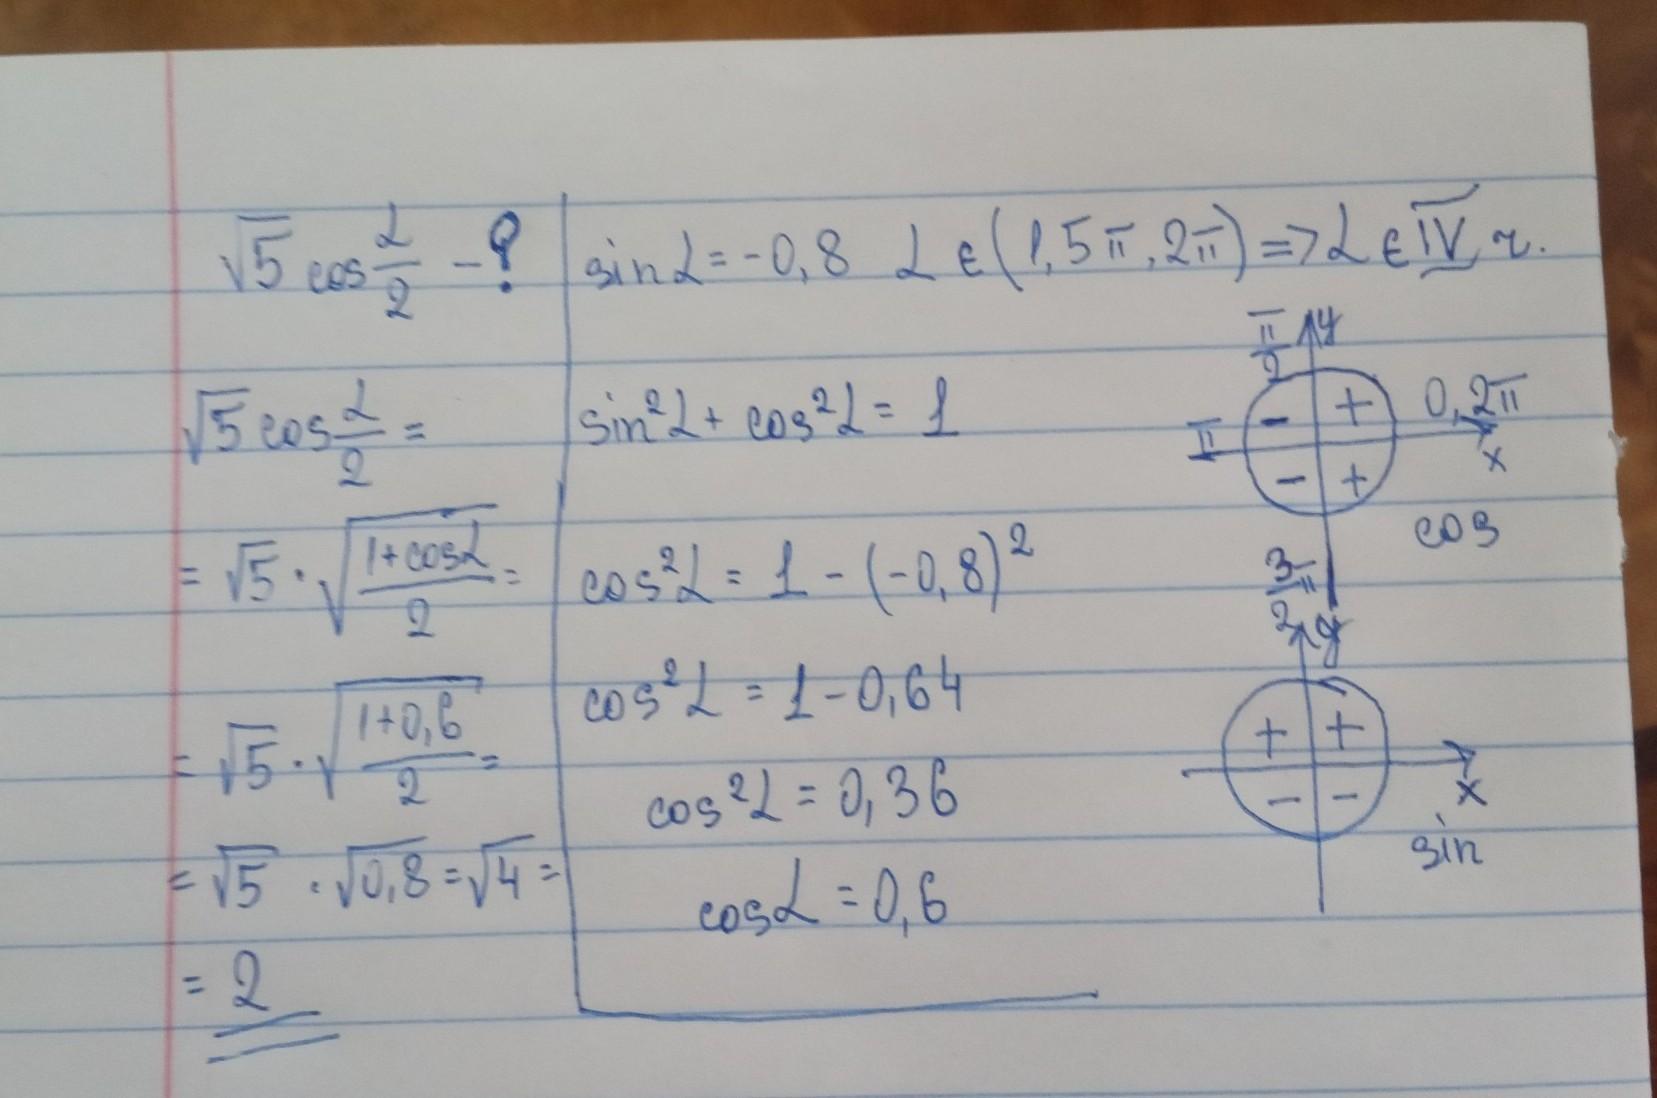 √5 cos α/2 - ?
√5 cos α/2 =
= √5 · √((1+cosα)/2) =
= √5 · √((1+0,6)/2) =
= √5 · √0,8 = √4 =
= 2
sinα = -0,8 α ∈ (1,5π, 2π) => α ∈ IV r.
sin²α + cos²α = 1
cos²α = 1 - (-0,8)²
cos²α = 1 - 0,64
cos²α = 0,36
cosα = 0,6
π/2 y
- + 0, 2π
π x
- +
cos
3π/2
y
+ +
x
- -
sin